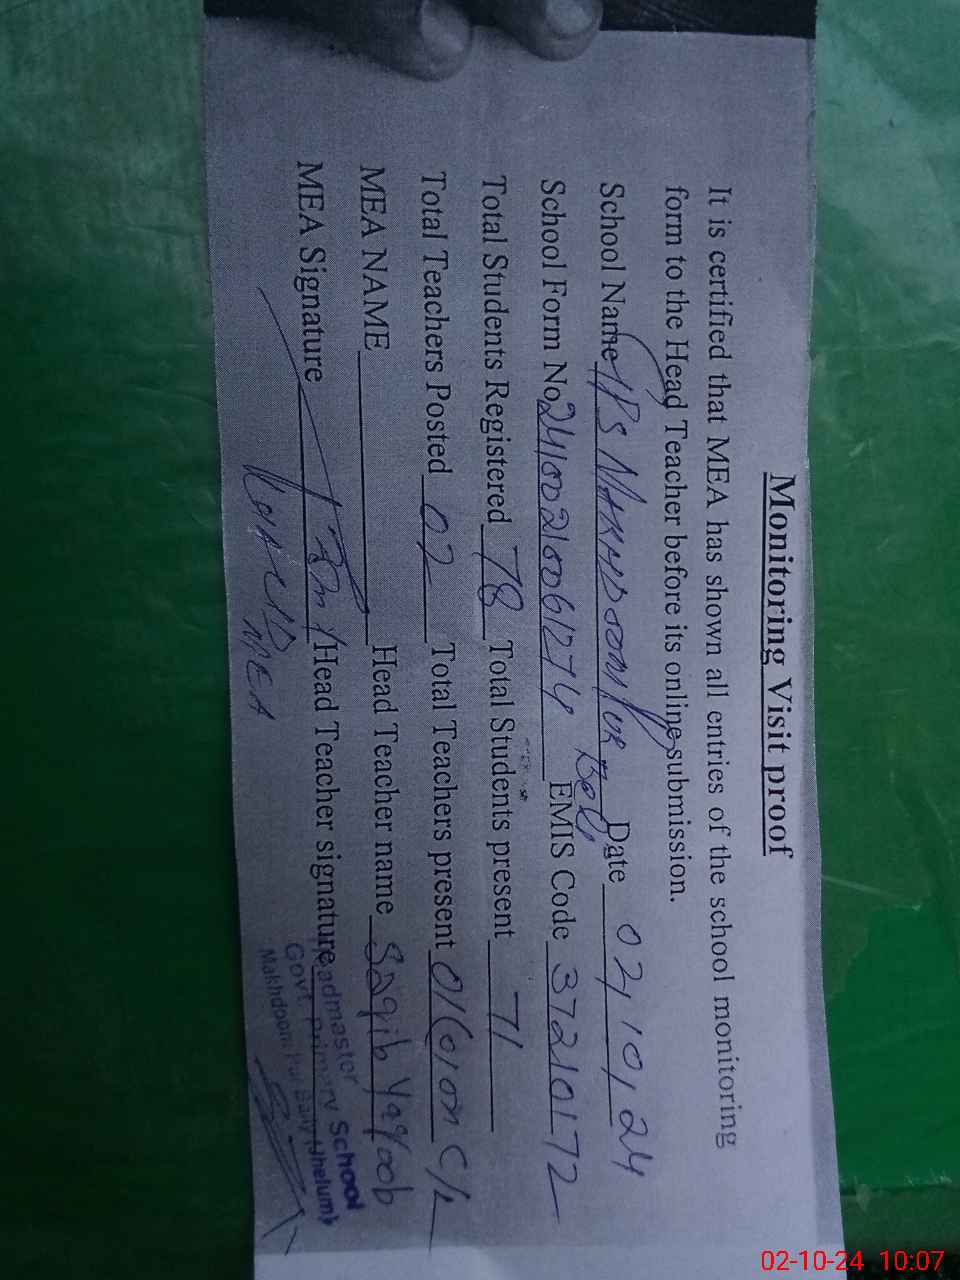 Monitoring Visit proof
It is certified that MEA has shown all entries of the school monitoring
form to the Head Teacher before its online submission.
School Name GPS MAKHDOOMPUR Date 02/10/24
School Form No EMIS Code 37210172
Total Students Registered 78 Total Students present 71
Total Teachers Posted 02 Total Teachers present 01(01 on C/L
MEA NAME Head Teacher name Saqib Yaqoob
MEA Signature Head Teacher signature
MEA
Headmaster
Govt. Primary School
Makhdoom Pur (Jhelum)
02-10-24 10:07